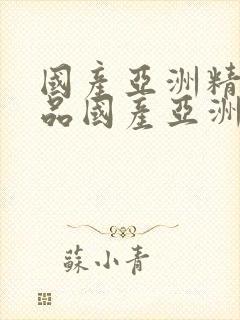 國產亞洲精
品國產亞洲
蘇小青